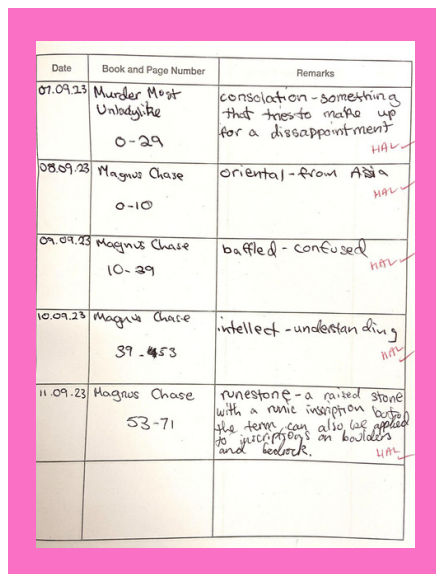 Date Book and Page Number Remarks
07.09.23 Murder Most
Unladylike
0-29
consolation - something
that tries to make up
for a dissappointment
HAL
08.09.23 Magnus Chase
0-10
oriental - from Asia
HAL
09.09.23 Magnus Chase
10-39
baffled - confused
HAL
10.09.23 Magnus Chase
39-53
intellect - understanding
HAL
11.09.23 Magnus Chase
53-71
runestone - a raised stone
with a runic inscription but
the term can also be applied
to inscriptions on boulders
and bedrock.
HAL